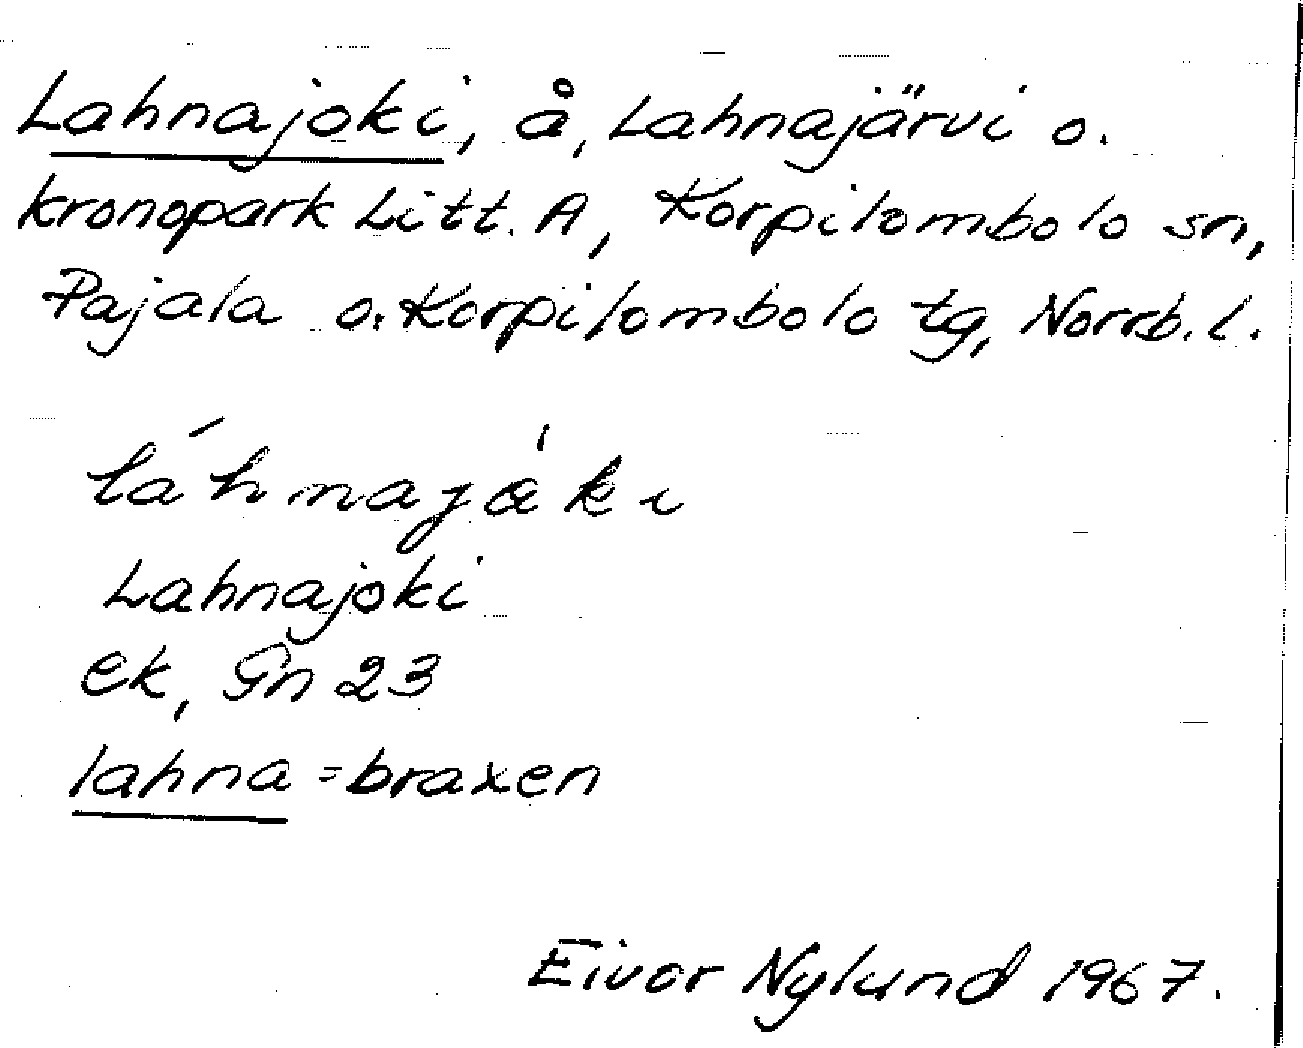 Lahnajoki, å, Lahnajärvi o.
kronopark Litt. A, Korpilombolo sn,
Pajala o. Korpilombolo tg, Norrb. l.
láhnajȧki
Lahnajoki
ek, Gn 23
lahna = braxen
Eivor Nylund 1967.